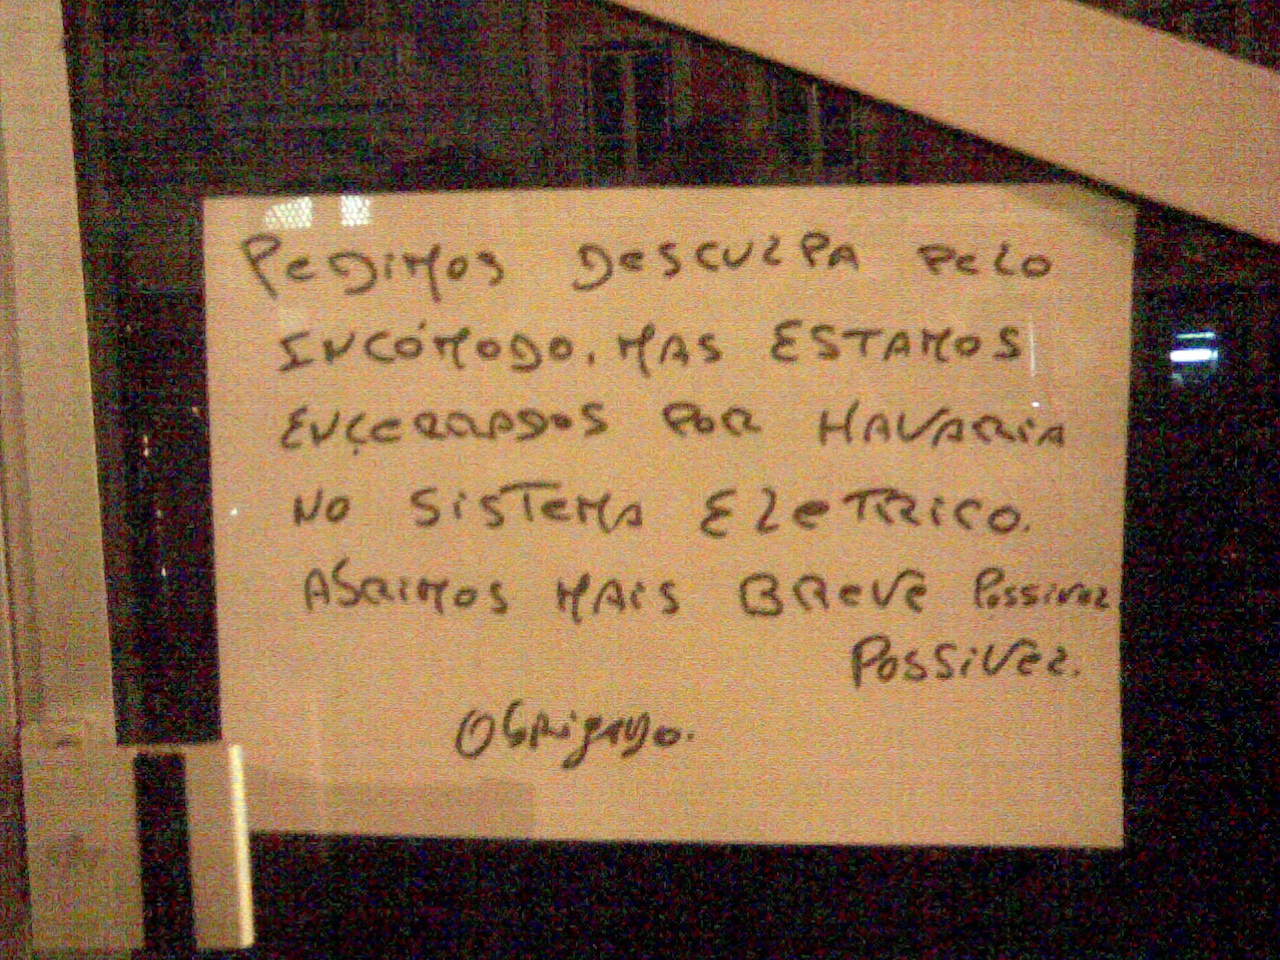 PEDIMOS DESCULPA PELO
INCÓMODO. MAS ESTAMOS
ENÇERRADOS POR HAVARIA
NO SISTEMA ELETRICO.
ABRIMOS MAIS BREVE POSSIVEL
POSSIVEL.
OBRIGADO.